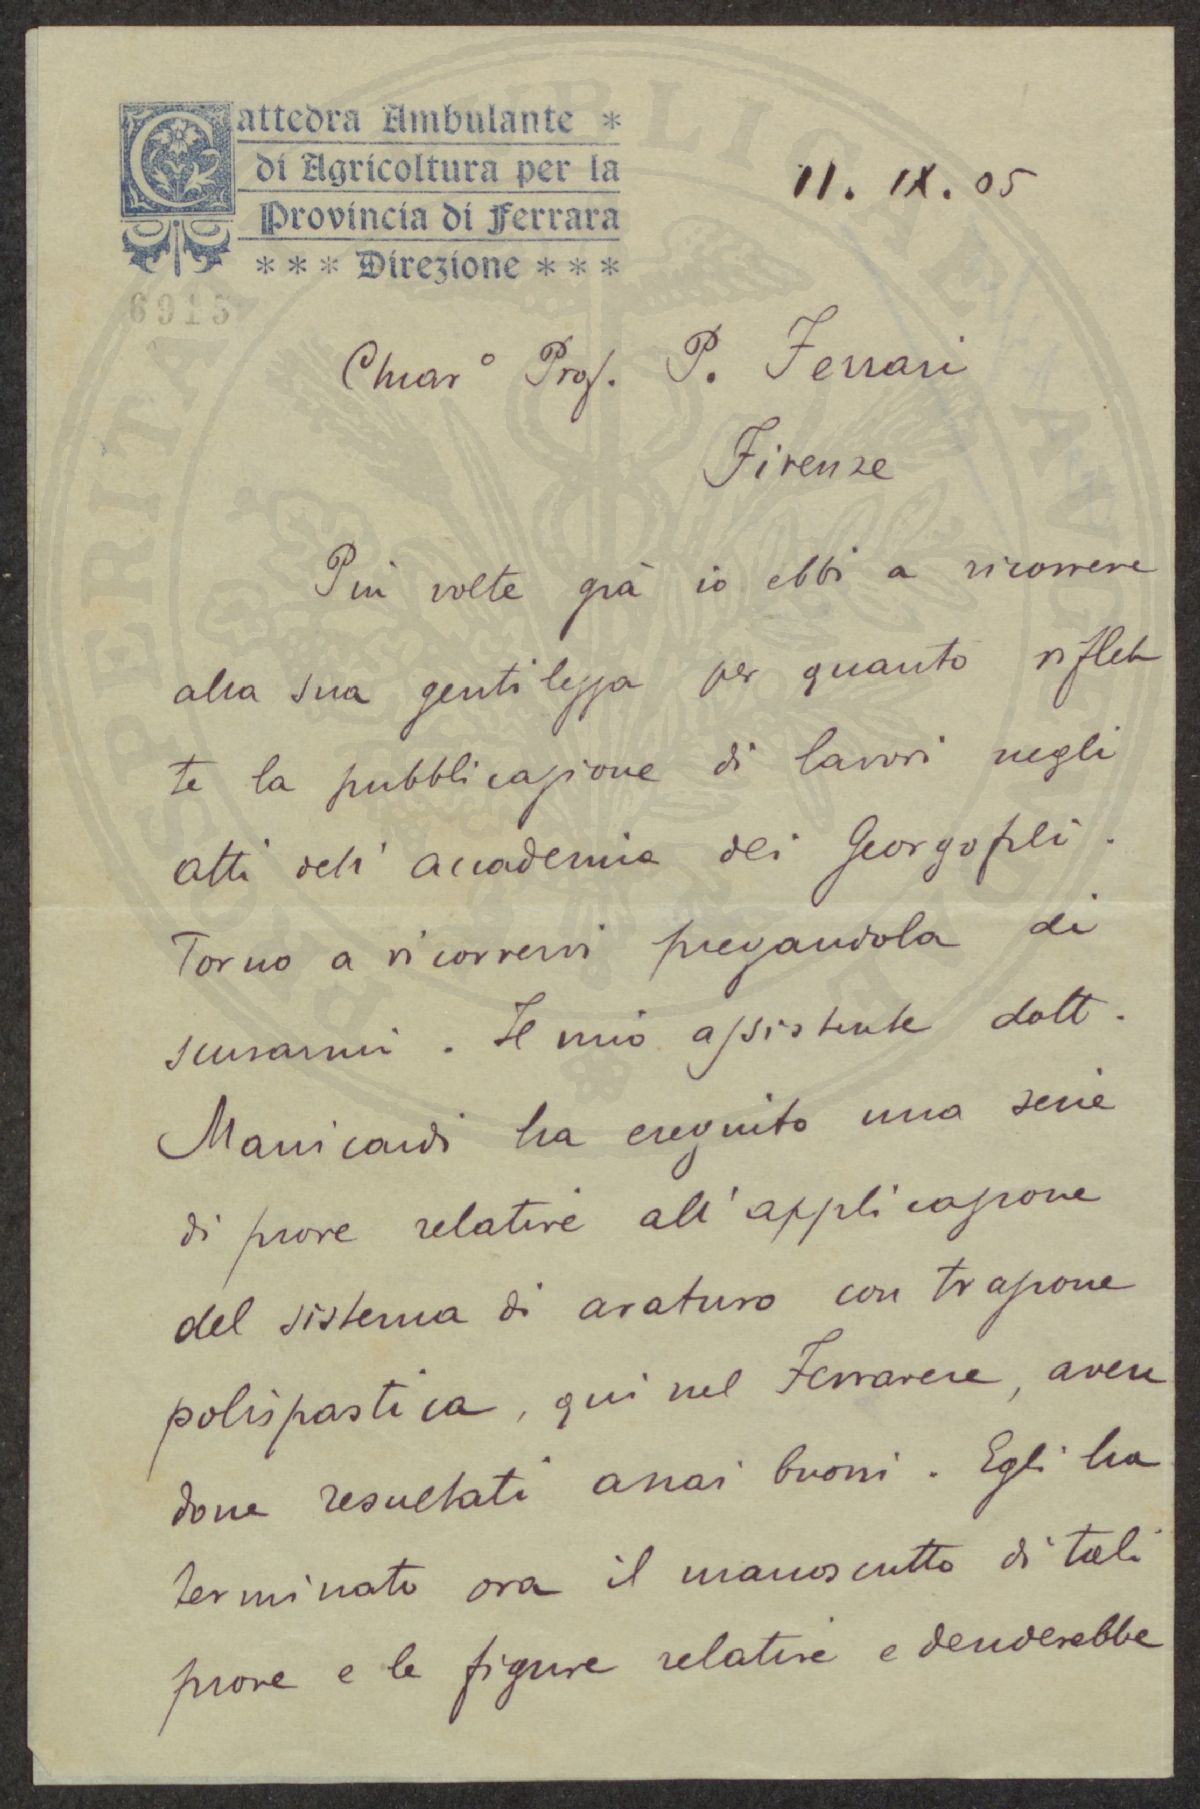 Cattedra Ambulante *
di Agricoltura per la
Provincia di Ferrara
* * * Direzione * * *
11. IX. 05
6915
Chiar° Prof. P. Ferrari
Firenze
Più volte già io ebbi a ricorrere
alla sua gentilezza per quanto riflet
te la pubblicazione di lavori negli
atti dell'accademia dei Georgofili.
Torno a ricorrervi pregandola di
scusarmi. Il mio assistente dott.
Manicardi ha eseguito una serie
di prove relative all'applicazione
del sistema di aratura con trazione
polispastica, qui nel Ferrarese, aven
done resultati assai buoni. Egli ha
terminato ora il manoscritto di tali
prove e le figure relative e desiderebbe